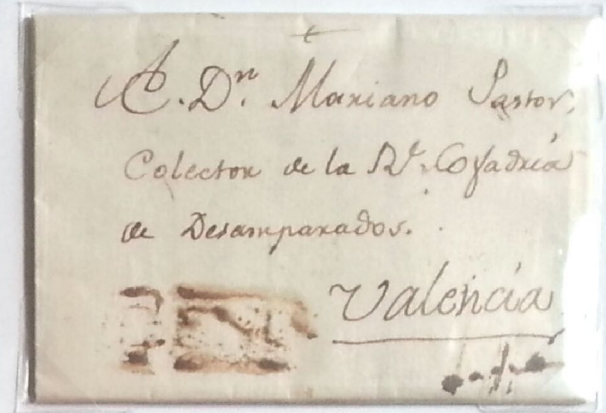 A. Dn. Mariano Pastor,
Colector de la Rl. Cofadria
de Desamparados.
Valencia